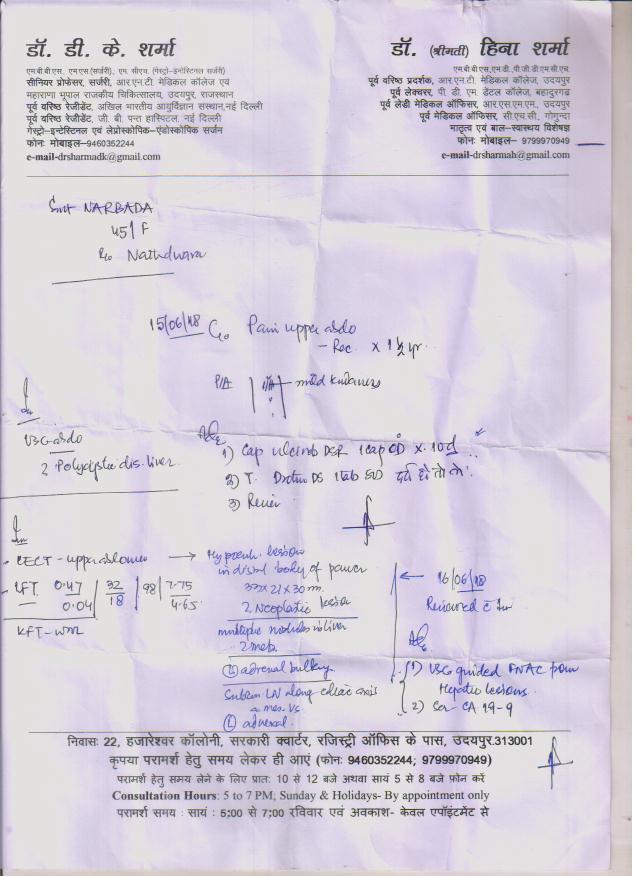 डॉ. डी. के. शर्मा
एम.बी.बी.एस., एम.एस (सर्जरी), एम. सीएच. (गेस्ट्रो-इन्टेस्टिनल सर्जरी)
सीनियर प्रोफेसर, सर्जरी, आर.एन.टी. मेडिकल कॉलेज एवं
महाराणा भूपाल राजकीय चिकित्सालय, उदयपुर, राजस्थान
पूर्व वरिष्ठ रेजीडेंट, अखिल भारतीय आयुर्विज्ञान संस्थान, नई दिल्ली
पूर्व वरिष्ठ रेजीडेंट, जी. बी. पन्त हास्पिटल, नई दिल्ली
गेस्ट्रो-इन्टेस्टिनल एवं लेप्रोस्कोपिक-एंडोस्कोपिक सर्जन
फोनः मोबाइल-9460352244
e-mail-drsharmadk@gmail.com
डॉ. (श्रीमती) हिना शर्मा
एम.बी.बी.एस., एम.डी., पी.जी.डी.एम.सी.एच.
पूर्व वरिष्ठ प्रदर्शक, आर.एन.टी. मेडिकल कॉलेज, उदयपुर
पूर्व लेक्चरर, पी. डी. एम. डेंटल कॉलेज, बहादुरगढ
पूर्व लेडी मेडिकल ऑफिसर, आर.एस.एम.एम., उदयपुर
पूर्व मेडिकल ऑफिसर, सी.एच.सी., गोगुन्दा
मातृत्व एवं बाल-स्वास्थ्य विशेषज्ञ
फोनः मोबाइल- 9799970949
e-mail-drsharmah@gmail.com
Smt NARBADA
45/F
R/o Nathdwara
15/06/18 C/o Pain upper abdo
- Rec. x 1½ yr.
P/A mild
USG abdo
? Polycystic dis. liver
Adv
1) Cap DSR 1 cap OD x 10 d
2) T. DS 1 tab दर्द हो तो
3) Review
- CECT - upper abdomen → Hypoech. lesion
in distal body of pancr
33 x 21 x 30 mm.
? Neoplastic lesion
multiple nodules in liver
? mets.
(L) adrenal bulky
LN along celiac axis
(L) adrenal.
- LFT 0.47/0.04 | 32/18 | 98 | 7.75/4.65
KFT - WNL
← 16/06/18
Reviewed c
Adv
1) USG guided FNAC from
Hepatic lesions.
2) Ser CA 19-9
निवासः 22, हजारेश्वर कॉलोनी, सरकारी क्वार्टर, रजिस्ट्री ऑफिस के पास, उदयपुर.313001
कृपया परामर्श हेतु समय लेकर ही आएं (फोनः 9460352244; 9799970949)
परामर्श हेतु समय लेने के लिए प्रातः 10 से 12 बजे अथवा सायं 5 से 8 बजे फ़ोन करें
Consultation Hours: 5 to 7 PM; Sunday & Holidays- By appointment only
परामर्श समय : सायं : 5:00 से 7:00 रविवार एवं अवकाश- केवल एपॉइंटमेंट से